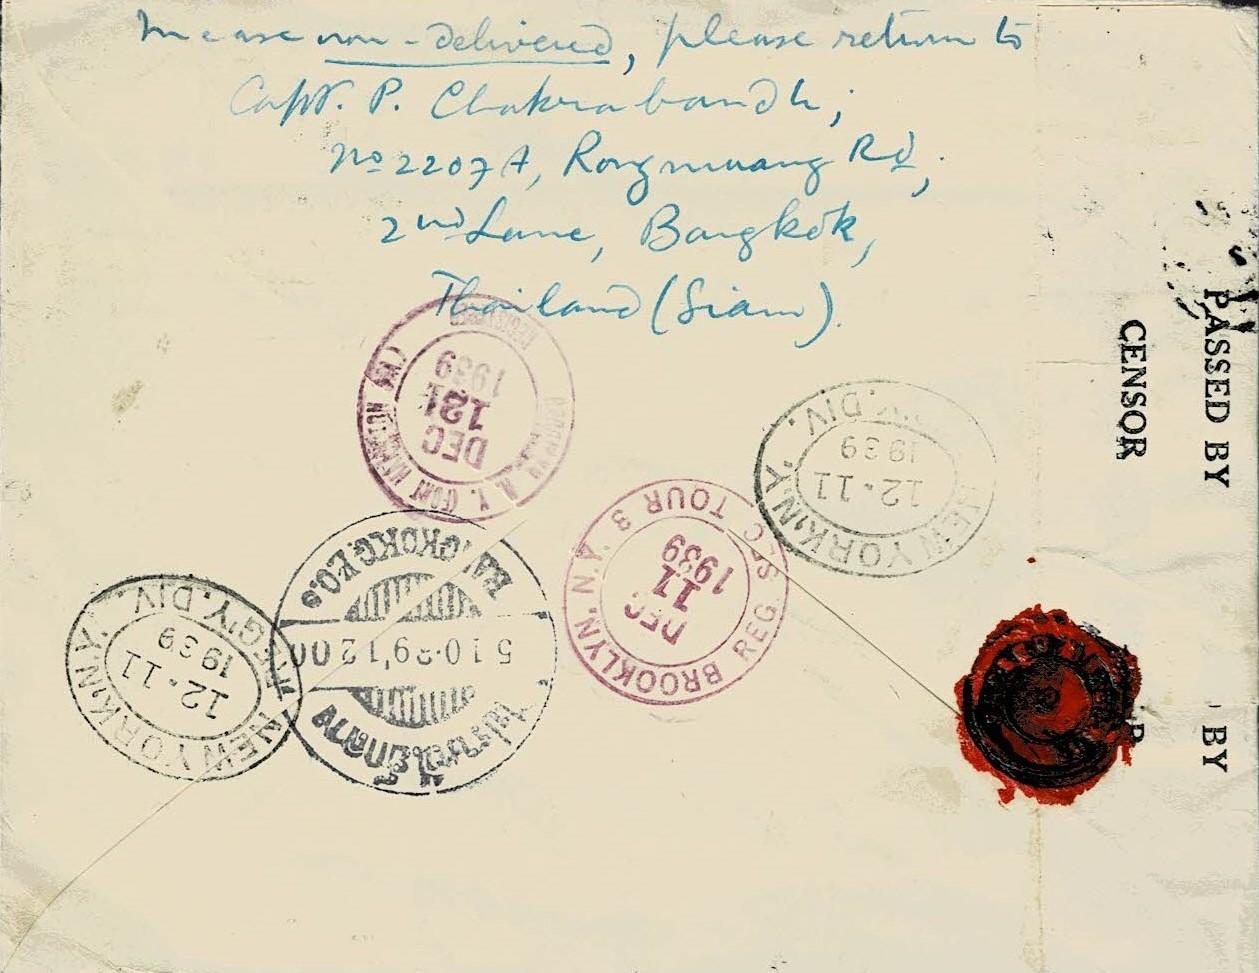 In case non-delivered, please return to
Capt. P. Chakrabandh,
No 2207A, Rongmuang Rd,
2nd Lane, Bangkok,
Thailand (Siam).
PASSED BY
CENSOR
REGISTERED
DEC
12
1939
N. Y. (FORT HAMILTON STA.)
NEW YORK, N.Y. REG'Y. DIV.
12-11
1939
BROOKLYN, N.Y. REG. SEC TOUR 3
DEC
11
1939
BANGKOK G.P.O.
5 10.39
NEW YORK, N.Y. REG'Y. DIV.
12-11
1939
BY